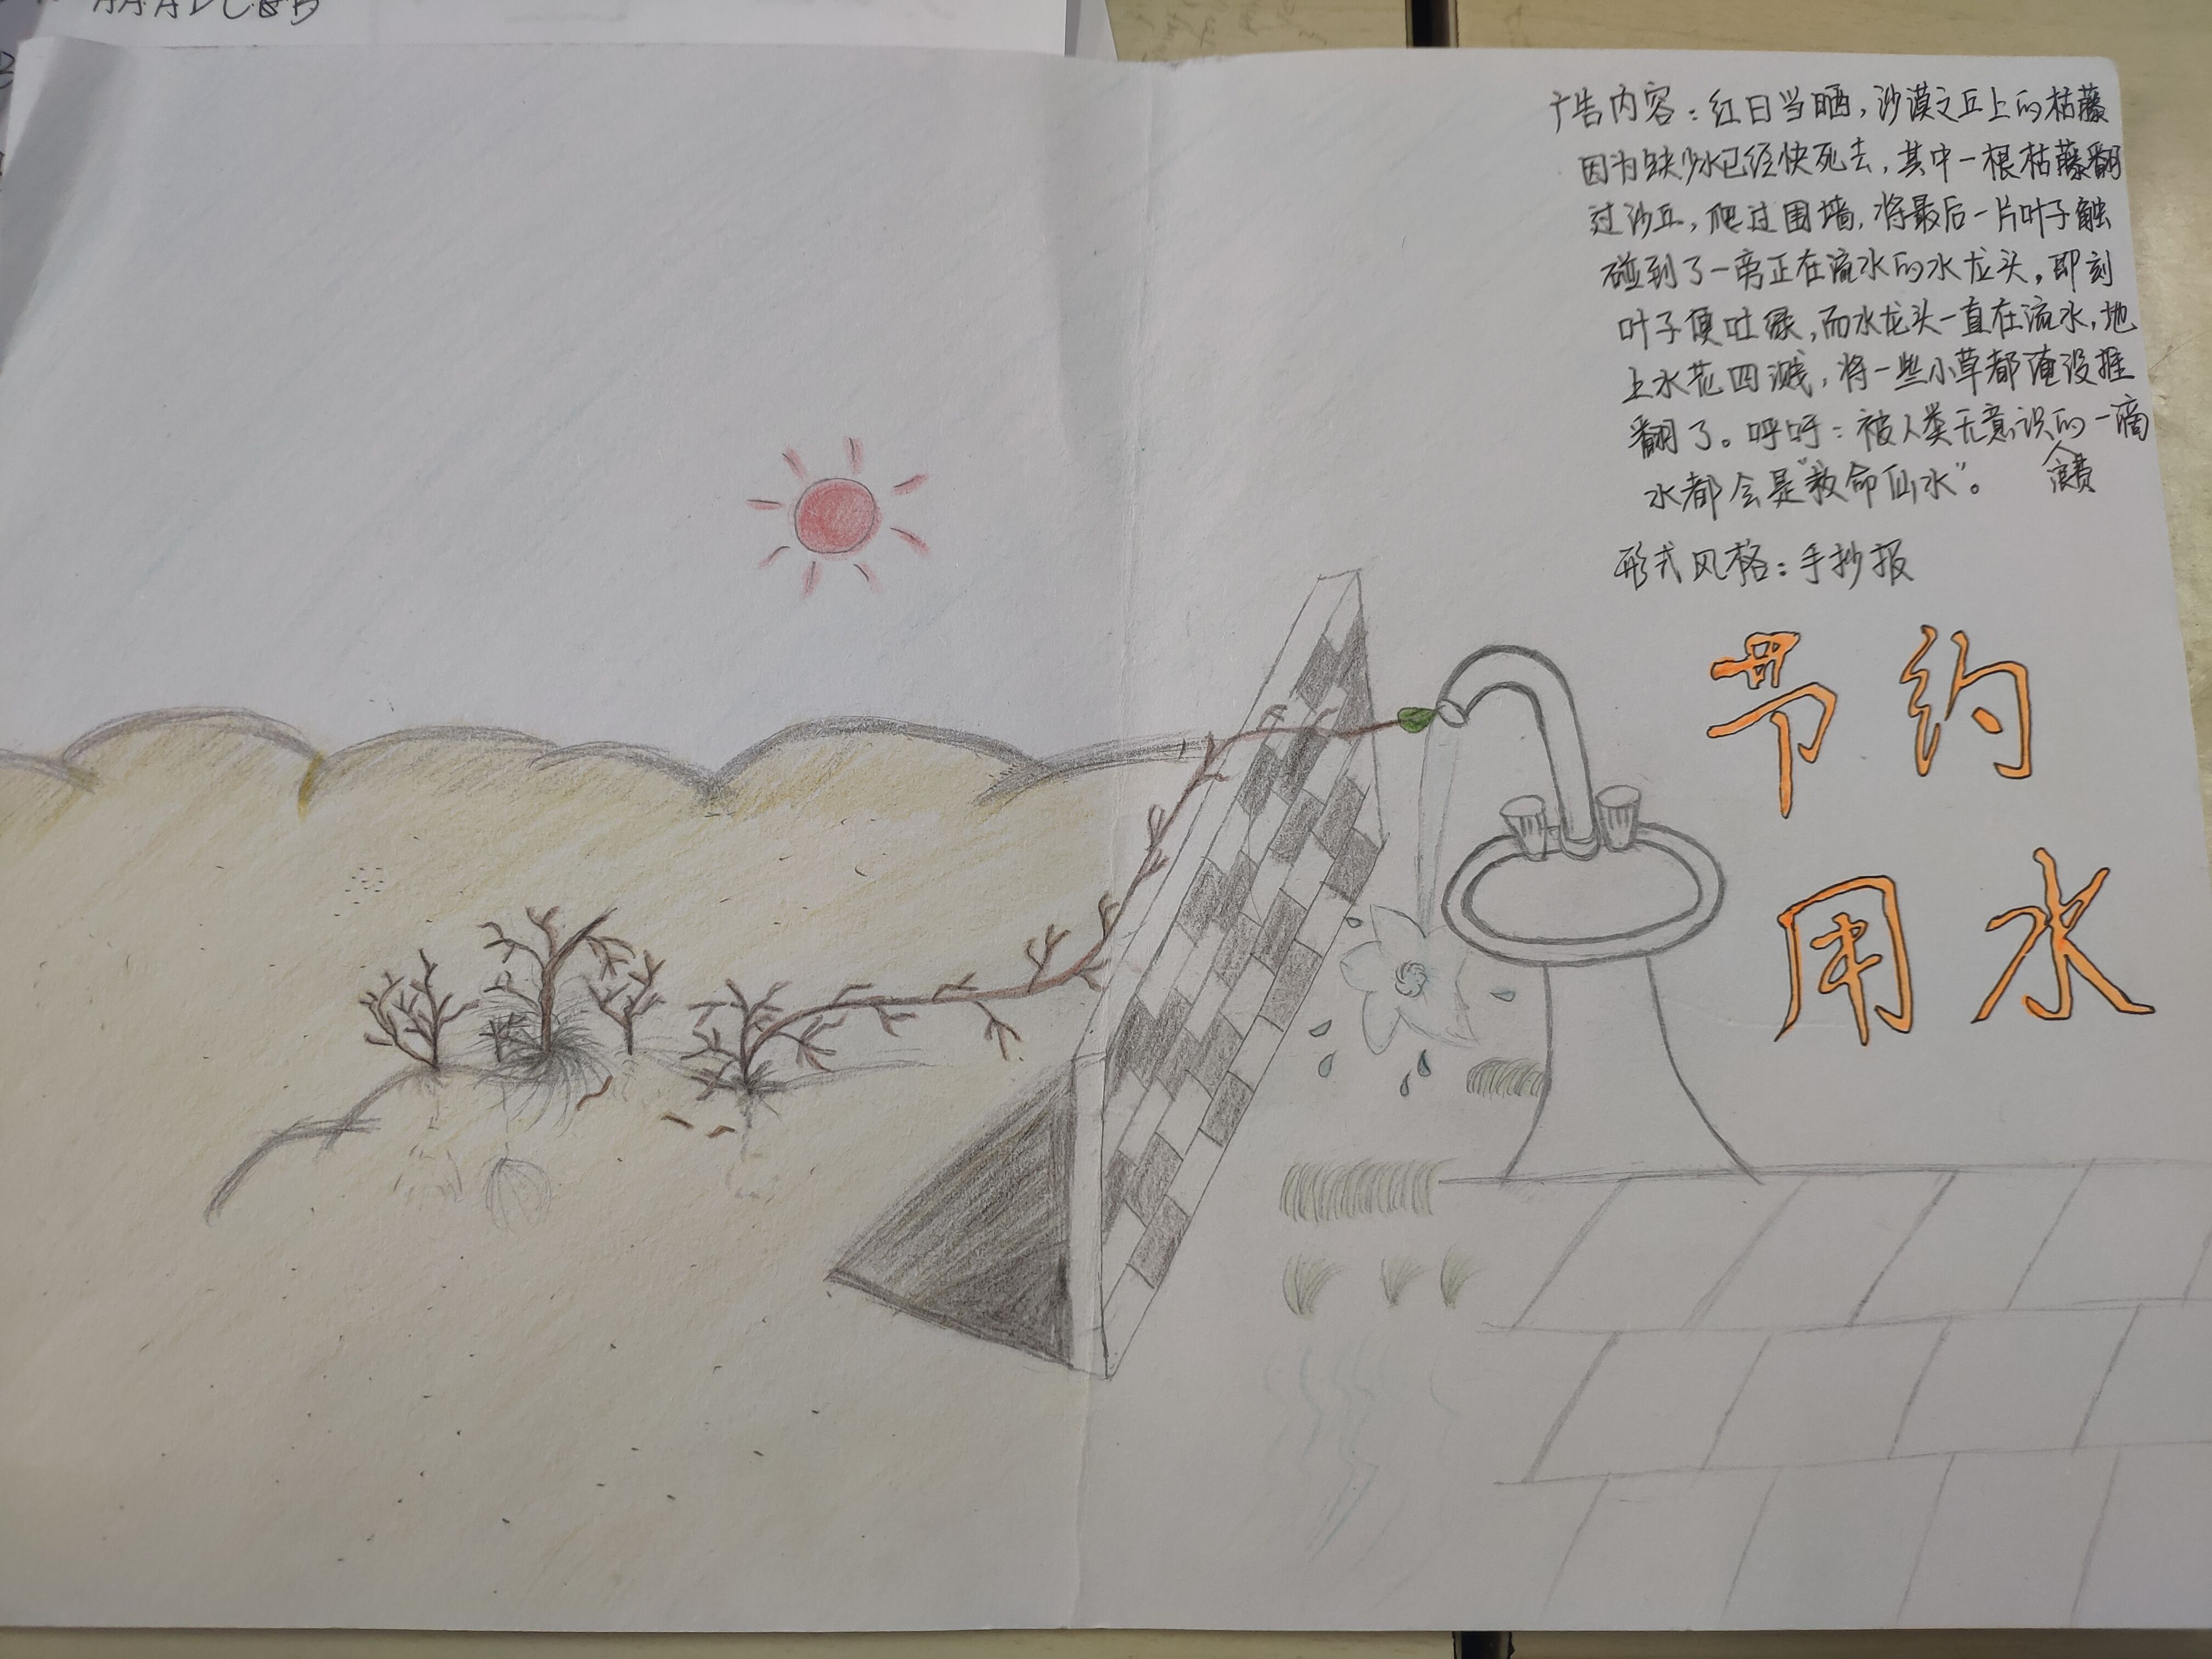 AAADCBB
广告内容：红日当晒，沙漠之丘上的枯藤
因为缺少水已经快死去，其中一根枯藤翻
过沙丘，爬过围墙，将最后一片叶子触
碰到了一旁正在流水的水龙头，即刻
叶子便吐绿，而水龙头一直在流水，地
上水花四溅，将一些小草都淹没推
翻了。呼吁：被人类无意识浪费的一滴
水都会是“救命仙水”。
形式风格：手抄报
节约
用水